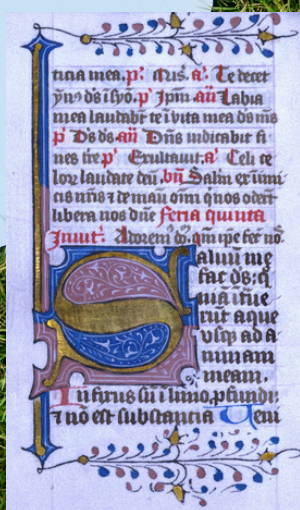 ticia mea. p̃. ã. Te decet
ẏn9 d̃s ĩ sẏõ. p̃ Ip̃m añ Labia
mea laudab̃t te ĩ vita mea d̃s m̃s
p̃ D̃s d̃s añ Dñs iudicabit fi
nes t̃re p̃ Exultauit. ã. Celi ce
lor̃ laudate deũ. Salm ex inimi
cis nr̃is ⁊ de manũ oĩm q̃ nos oder̃t
libera nos dñe feria quinta
Inuit̃. Adorem9 qm̃ ip̃e fec̃ nos.
Saluũ me
fac d̃s: q̃
niã ĩtue
rũt aque
vsq3 ad a
nimam
meam.
Infixus sũ ĩ limo. p̃fundi:
⁊ no est substantia Veni